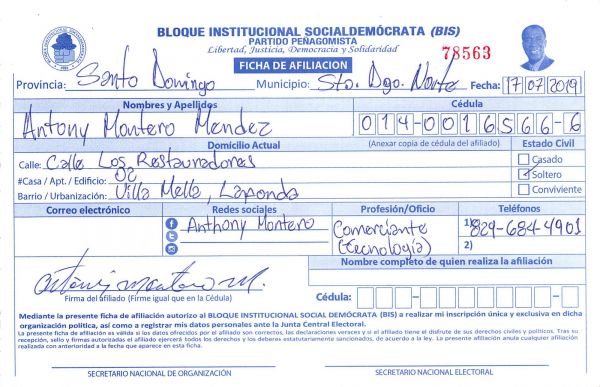 BLOQUE INSTITUCIONAL SOCIALDEMÓCRATA (BIS)
PARTIDO PEÑAGOMISTA
Libertad, Justicia, Democracia y Solidaridad
78563
FICHA DE AFILIACION
Provincia: Santo Domingo Municipio: Sto. Dgo. Norte Fecha: 17/07/2019
Nombres y Apellidos Cédula
Antony Montero Mendez 014-0016566-6
Domicilio Actual (Anexar copia de cédula del afiliado) Estado Civil
Calle: Calle Los Restauradores Casado
#Casa / Apt. / Edificio: 02 Soltero
Barrio / Urbanización: Villa Mella, Laponda Conviviente
Correo electrónico Redes sociales Profesión/Oficio Teléfonos
Anthony Montero Comerciante 1) 829-684-4901
(tecnología) 2)
Nombre completo de quien realiza la afiliación
Firma del afiliado (Firme igual que en la Cédula) Cédula:
Mediante la presente ficha de afiliación autorizo al BLOQUE INSTITUCIONAL SOCIAL DEMÓCRATA (BIS) a realizar mi inscripción única y exclusiva en dicha
organización política, así como a registrar mis datos personales ante la Junta Central Electoral.
La presente ficha de afiliación es válida si los datos ofrecidos por el afiliado son correctos, las declaraciones veraces y si el afiliado tiene el disfrute de sus derechos civiles y políticos. Tras su
recepción, sello y firmas autorizadas el afiliado ejercerá todos los derechos y los deberes estatutariamente sancionados, de acuerdo a la ley. La presente afiliación anula cualquier afiliación
realizada con anterioridad a la fecha que aparece en esta ficha.
SECRETARIO NACIONAL DE ORGANIZACIÓN SECRETARIO NACIONAL ELECTORAL